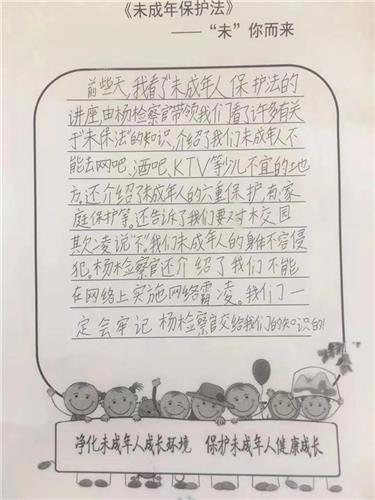 《未成年保护法》
——“未”你而来
前些天，我看了“未成年人保护法的
讲座，由杨检察官带领我们看了许多有关
于“未保法”的知识，介绍了我们未成年人不
能去网吧、酒吧、KTV等少儿不宜的地
方，还介绍了未成年人的六重保护，有：家
庭保护等。还告诉了我们要对校园
欺凌说“不”。我们未成年人的身体不容侵
犯，杨检察官还介绍了我们不能
在网络上实施网络霸凌。我们一
定会牢记杨检察官交给我们的知识的!
净化未成年人成长环境 保护未成年人健康成长